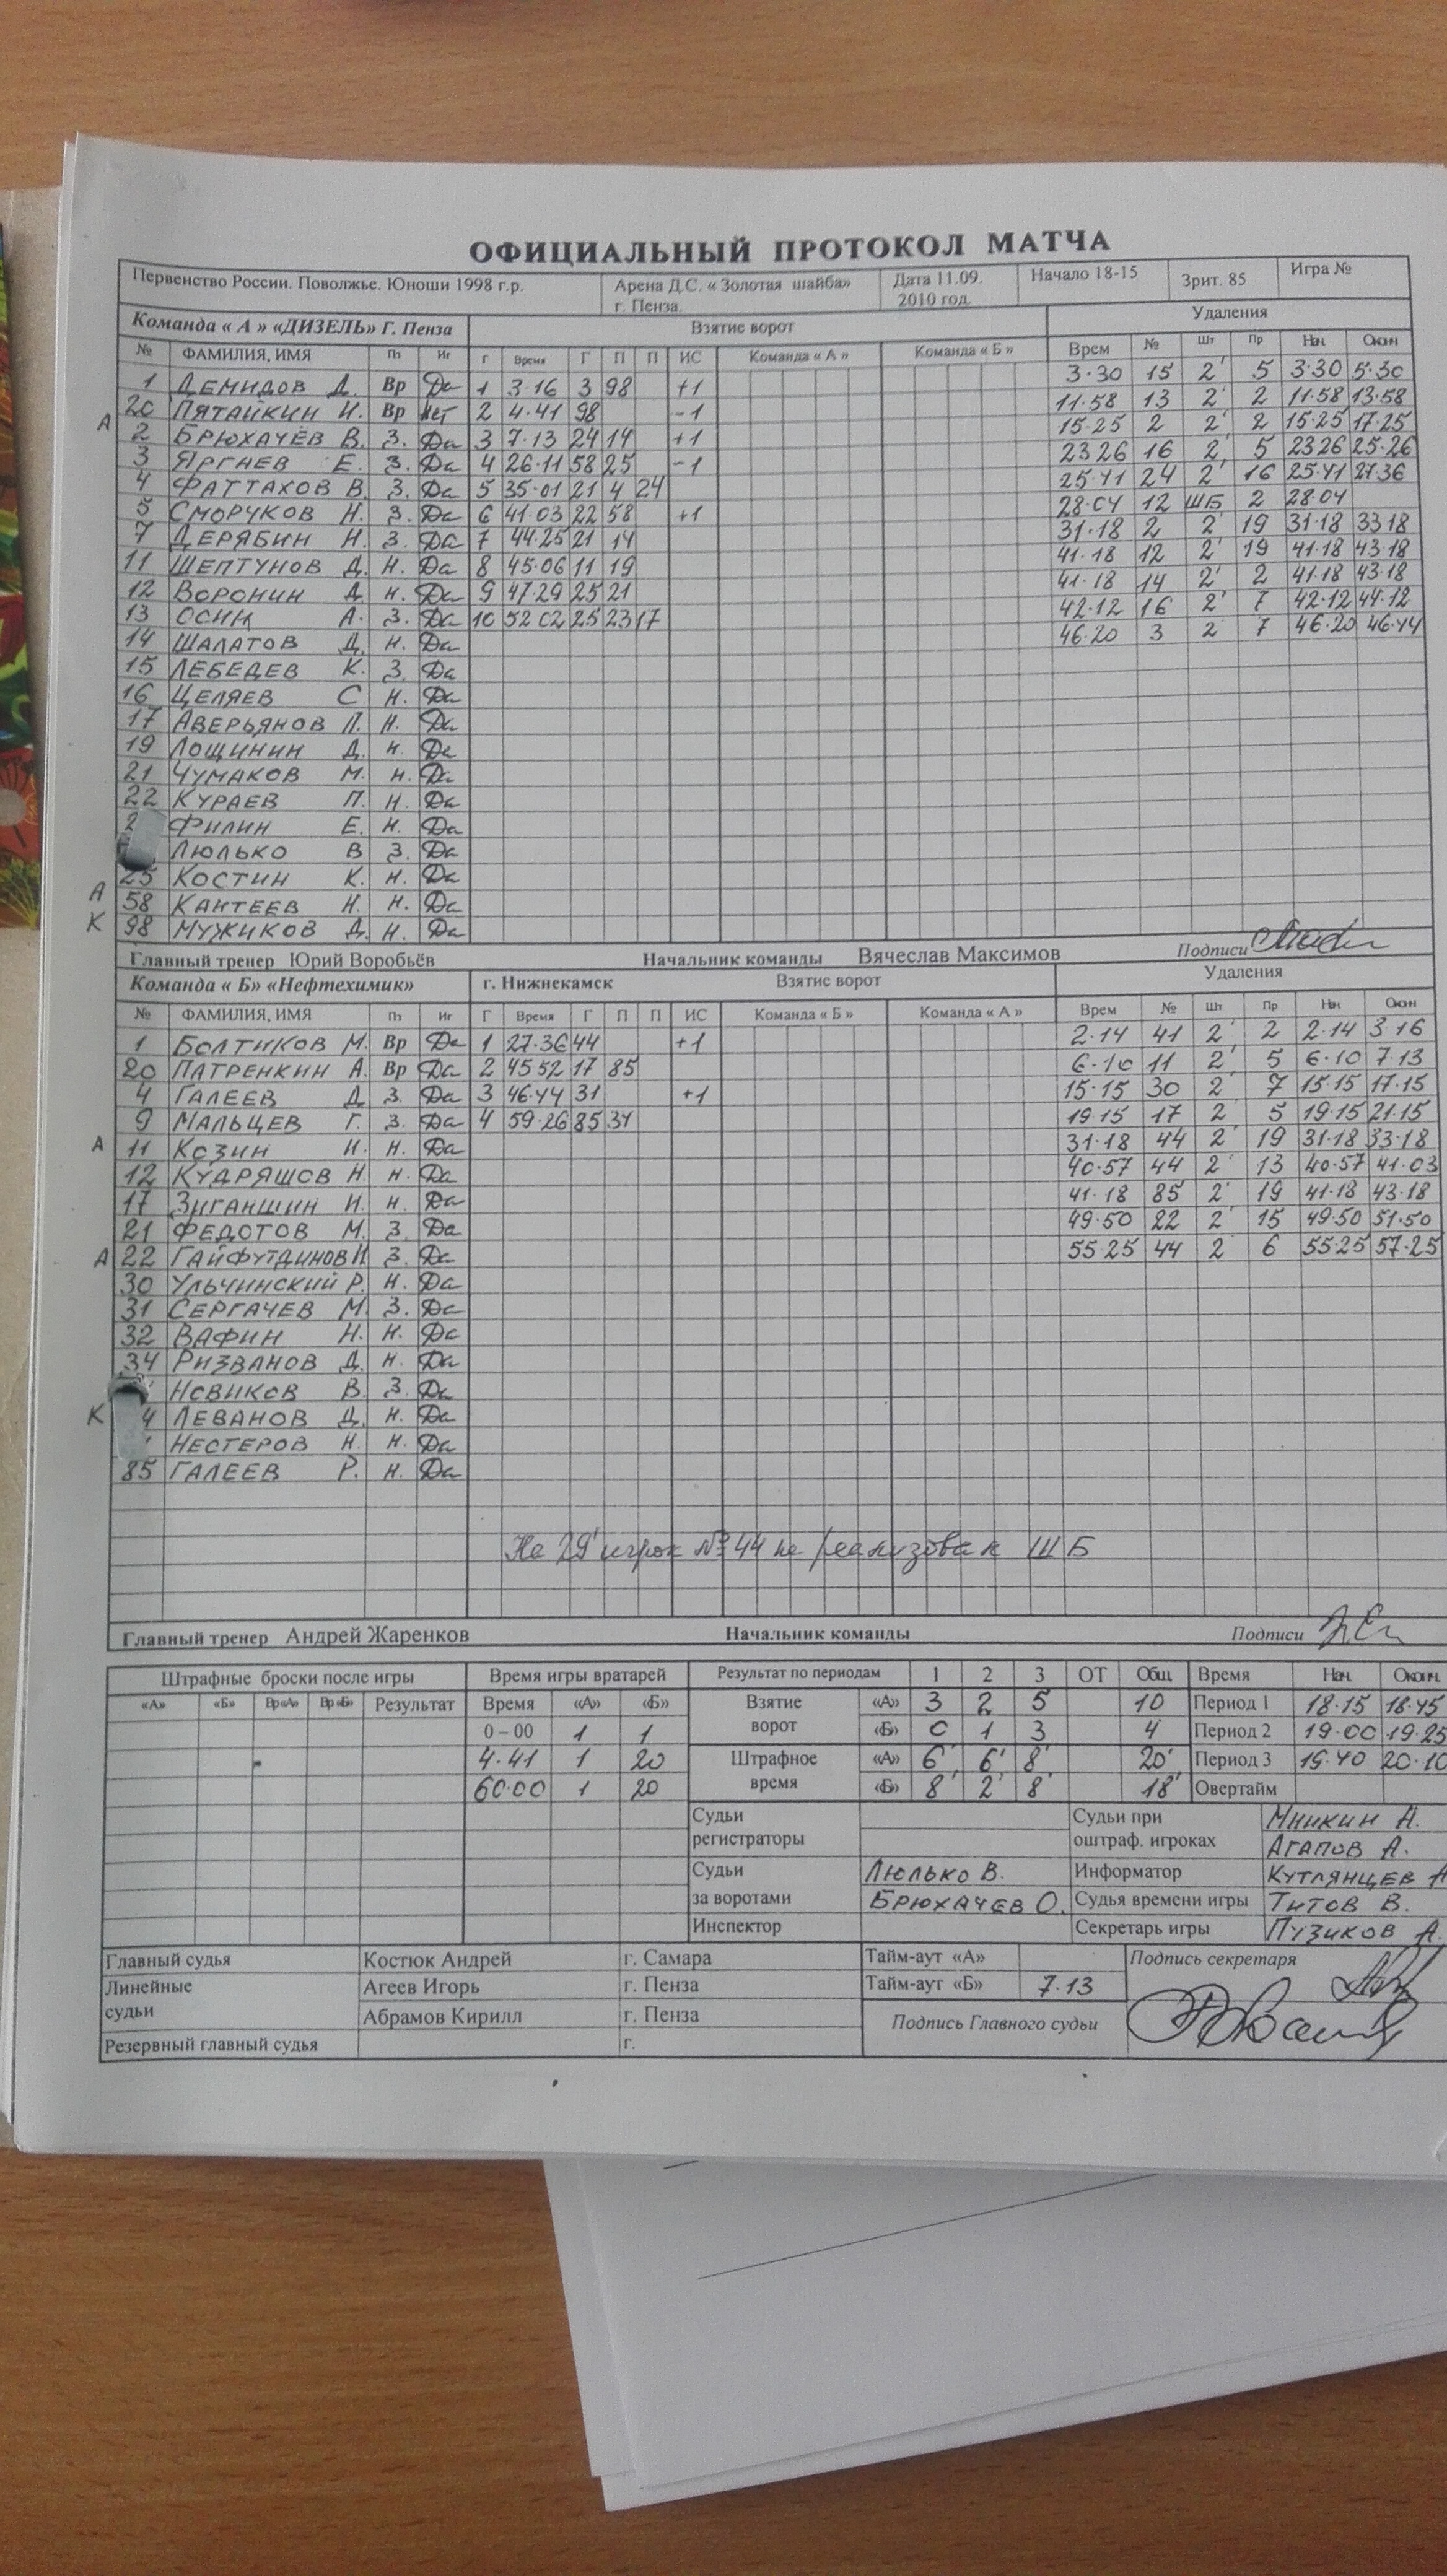 ОФИЦИАЛЬНЫЙ ПРОТОКОЛ МАТЧА
Первенство России. Поволжье. Юноши 1998 г.р. Арена Д.С. « Золотая шайба» г. Пенза. Дата 11.09. 2010 год. Начало 18-15 Зрит. 85 Игра №
Команда « А » «ДИЗЕЛЬ» Г. Пенза Взятие ворот Удаления
№ ФАМИЛИЯ, ИМЯ Пз Иг Г Время Г П П ИС Команда « А » Команда « Б » Врем № Шт Пр Нач. Оконч
1 ДЕМИДОВ Д. Вр Да 1 3·16 3 98 +1 3·30 15 2' 5 3·30 5·30
20 ПЯТАЙКИН И. Вр Нет 2 4·41 98 -1 11·58 13 2' 2 11·58 13·58
А 2 БРЮХАЧЁВ В. З. Да 3 7·13 24 14 +1 15·25 2 2' 2 15·25 17·25
3 ЯРГАЕВ Е. З. Да 4 26·11 58 25 -1 23 26 16 2' 5 23 26 25·26
4 ФАТТАХОВ В. З. Да 5 35·01 21 4 24 25·41 24 2' 16 25·41 27·36
5 СМОРЧКОВ Н. З. Да 6 41·03 22 58 +1 28·04 12 ШБ 2 28·04
7 ДЕРЯБИН Н. З. Да 7 44·25 21 14 31·18 2 2' 19 31·18 33 18
11 ШЕПТУНОВ Д. Н. Да 8 45·06 11 19 41·18 12 2' 19 41·18 43·18
12 ВОРОНИН Д. Н. Да 9 47·29 25 21 41·18 14 2' 2 41·18 43·18
13 ОСИН А. З. Да 10 52 02 25 23 17 42·12 16 2' 7 42·12 44·12
14 ШАЛАТОВ Д. Н. Да 46·20 3 2 7 46·20 46·44
15 ЛЕБЕДЕВ К. З. Да
16 ЦЕЛЯЕВ С Н. Да
17 АВЕРЬЯНОВ П. Н. Да
19 ЛОЩИНИН Д. Н. Да
21 ЧУМАКОВ М. Н. Да
22 КУРАЕВ П. Н. Да
2 ФИЛИН Е. Н. Да
ЛЮЛЬКО В З. Да
А 25 КОСТИН К. Н. Да
58 КАНТЕЕВ Н. Н. Да
К 98 МУЖИКОВ Д. Н. Да
Главный тренер Юрий Воробьёв Начальник команды Вячеслав Максимов Подписи
Команда « Б» «Нефтехимик» г. Нижнекамск Взятие ворот Удаления
№ ФАМИЛИЯ, ИМЯ Пз Иг Г Время Г П П ИС Команда « Б » Команда « А » Врем № Шт Пр Нач Оконч
1 БОЛТИКОВ М. Вр Да 1 27·36 44 +1 2·14 41 2' 2 2·14 3·16
20 ПАТРЕНКИН А. Вр Да 2 45 52 17 85 6·10 11 2' 5 6·10 7·13
4 ГАЛЕЕВ Д. З. Да 3 46·44 31 +1 15·15 30 2' 7 15·15 17·15
9 МАЛЬЦЕВ Г. З. Да 4 59·26 85 34 19·15 17 2' 5 19·15 21·15
А 11 КОЗИН И. Н. Да 31·18 44 2' 19 31·18 33·18
12 КУДРЯШОВ Н. Н. Да 40·57 44 2' 13 40·57 41·03
17 ЗИГАНШИН И. Н. Да 41·18 85 2' 19 41·18 43·18
21 ФЕДОТОВ М. З. Да 49·50 22 2' 15 49·50 51·50
А 22 ГАЙФУТДИНОВ И. З. Да 55 25 44 2' 6 55·25 57·25
30 УЛЬЧИНСКИЙ Р. Н. Да
31 СЕРГАЧЕВ М. З. Да
32 ВАФИН Н. Н. Да
34 РИЗВАНОВ Д. Н. Да
НОВИКОВ В. З. Да
К 4 ЛЕВАНОВ Д. Н. Да
НЕСТЕРОВ Н. Н. Да
85 ГАЛЕЕВ Р. Н. Да
На 29' игрок № 44 не реализовал ШБ
Главный тренер Андрей Жаренков Начальник команды Подписи
Штрафные броски после игры Время игры вратарей Результат по периодам 1 2 3 ОТ Общ Время Нач. Оконч.
«А» «Б» Вр«А» Вр«Б» Результат Время «А» «Б» Взятие ворот «А» 3 2 5 10 Период 1 18·15 18·45
0 – 00 1 1 «Б» 0 1 3 4 Период 2 19·00 19·25
4·41 1 20 Штрафное время «А» 6' 6' 8' 20' Период 3 19·40 20·10
60·00 1 20 «Б» 8' 2' 8' 18' Овертайм
Судьи регистраторы Судьи при оштраф. игроках МНИКИН А.
АГАПОВ А.
Судьи за воротами ЛЮЛЬКО В. Информатор КУТЛЯНЦЕВ А
БРЮХАЧЕВ О. Судья времени игры ТИТОВ В.
Инспектор Секретарь игры ПУЗИКОВ А.
Главный судья Костюк Андрей г. Самара Тайм-аут «А» Подпись секретаря
Линейные судьи Агеев Игорь г. Пенза Тайм-аут «Б» 7·13
Абрамов Кирилл г. Пенза Подпись Главного судьи
Резервный главный судья г.